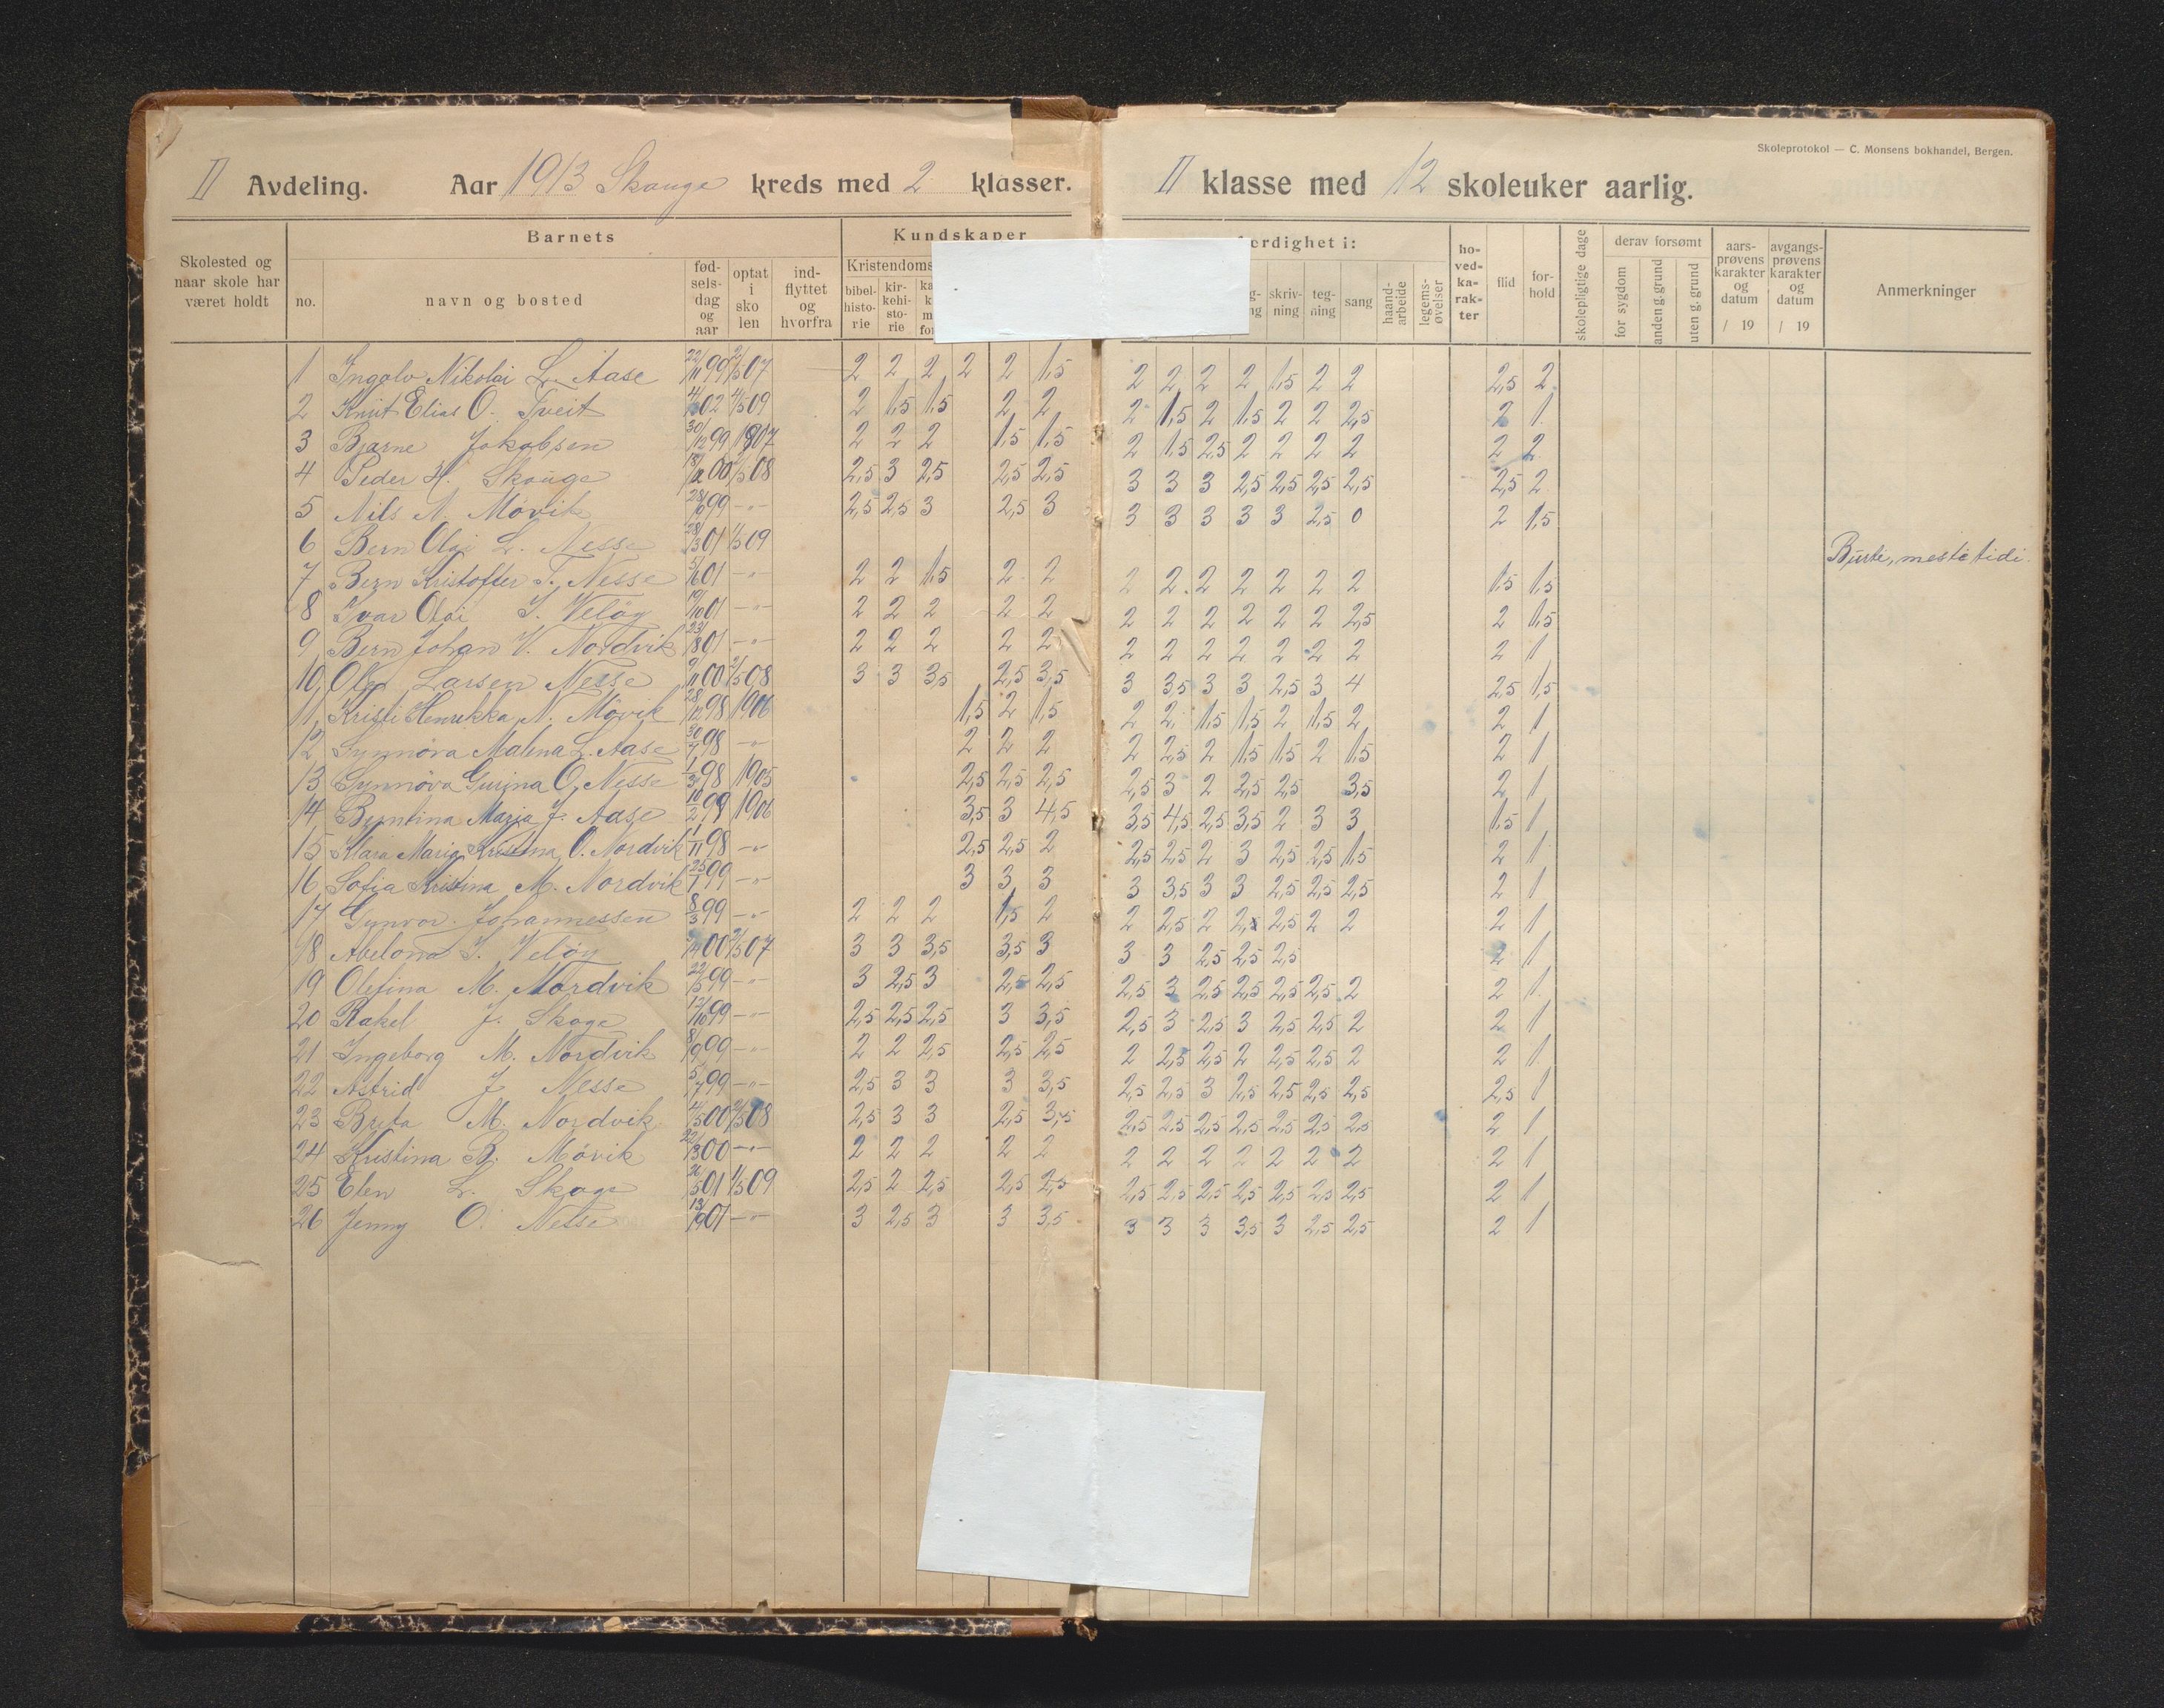 Skoleprotokol — C. Monsens bokhandel, Bergen.
II Avdeling. Aar 1913 Skauge kreds med 2 klasser. II klasse med 12 skoleuker aarlig.
Skolested og naar skole har været holdt
Barnets
no. navn og bosted fødselsdag og aar optat i skolen indflyttet og hvorfra
Kundskaper
Kristendoms
bibelhistorie kirkehistorie
erdighet i:
skrivning tegning sang haandarbeide legemsøvelser
hovedkarakter flid forhold skolepligtige dage
derav forsømt
for sygdom anden g. grund uten g. grund
aarsprøvens karakter og datum / 19
avgangsprøvens karakter og datum / 19
Anmerkninger
1 Ingolv Nikolai L. Aase 22/11 99 2/5 07 2 2 2 2 2 1,5 2 2 2 2 1,5 2 2 2,5 2
2 Knut Elias O. Tveit 02 4/5 09 2 1,5 1,5 2 2 2 1,5 2 1,5 2 2 2,5 2 1
3 Bjarne Jakobsen 30/12 99 1907 2 2 2 1,5 1,5 2 1,5 2,5 2 2 2 2 2 2
4 Peder H. Skauge 00 /5 08 2,5 3 2,5 2,5 2,5 3 3 3 2,5 2,5 2,5 2,5 2,5 2
5 Nils N. Mövik 99 -"- 2,5 2,5 3 2,5 3 3 3 3 3 3 2,5 0 2 1,5
6 Bern Olai L. Nesse 28/3 01 1/5 09 mesta tidi.
7 Bern Kristoffer T. Nesse 5/6 01 -"- 2 2 1,5 2 2 2 2 2 2 2 2 2 1,5 1,5
8 Ivar Olai I. Velöy 19/10 01 -"- 2 2 2 2 2 2 2 2 2 2 2 2,5 2 1,5
9 Bern Johan V. Nordvik 23/8 01 -"- 2 2 2 2 2 2 2 2 2 2 2 2 2 1
10 Larsen Nesse 9/11 00 2/5 08 3 3 3,5 2,5 3,5 3 3,5 3 3 2,5 3 4 2,5 1,5
11 Kristi Henrikka N. Mövik 28/12 98 1906 1,5 2 1,5 2 2 1,5 1,5 2 1,5 2 2 1
12 Synnöva Malena L. Aase 30/7 98 -"- 2 2 2 2 2,5 2 1,5 1,5 2 1,5 2 1
13 Synnöva Gurina O. Nesse 1/3 98 1905 2,5 2,5 2,5 2,5 3 2 2,5 2,5 3,5 2 1
14 Byntina Maria J. Aase 10/2 99 1906 3,5 3 4,5 3,5 4,5 2,5 3,5 2 3 3 1,5 1
15 Klara Maria Kristina O. Nordvik 1/11 98 -"- 2,5 2,5 2 2,5 2,5 2 3 2,5 2,5 1,5 2 1
16 Sofia Kristina M. Nordvik 25/1 99 -"- 3 3 3 3 3,5 3 3 2,5 2,5 2,5 2 1
17 Gunvor Johannessen 8/3 99 -"- 2 2 2 1,5 2 2 2,5 2 2,5 2 2 2 1
18 Abelona I. Velöy 00 2/5 07 3 3 3,5 3,5 3 3 3 2,5 2,5 2,5 2 1
19 Olefina M. Nordvik 22/5 99 -"- 3 2,5 3 2,5 2,5 2,5 3 2,5 2,5 2,5 2,5 2 2 1
20 Rakel J. Skoge 12/10 99 -"- 2,5 2,5 2,5 3 3,5 2,5 3 2,5 3 2,5 2,5 2 2 1
21 Ingeborg M. Nordvik 8/9 99 -"- 2 2 2,5 2,5 2,5 2 2,5 2,5 2 2,5 2,5 2 2 1
22 Astrid J Nesse 5/7 99 -"- 2,5 3 3 3 3,5 2,5 2,5 3 2,5 2,5 2,5 2,5 2,5 1
23 Brita M. Nordvik 4/5 00 2/5 08 2,5 3 3 2,5 3,5 2,5 2,5 2,5 2,5 2,5 2,5 2,5 2 1
24 Kristina B. Mövik 22/3 00 -"- 2 2 2 2 2 2 2 2 2 2 2 2 2 1
25 Elen L. Skoge 26/5 01 1/5 09 2,5 2 2,5 2,5 2,5 2,5 2,5 2,5 2,5 2,5 2,5 2,5 2 1
26 Jenny O. Nesse 13/9 01 -"- 3 2,5 3 3 3,5 3 3 3 3,5 3 2,5 2,5 2 1